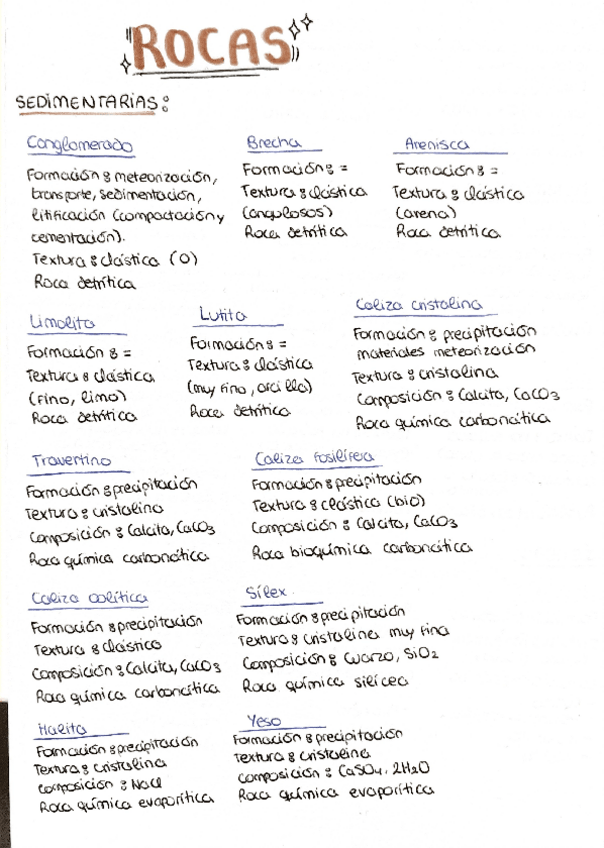 "ROCAS"
SEDIMENTARIAS:
Conglomerado
Formación: meteorización,
transporte, sedimentación,
litificación (compactación y
cementación).
Textura: clástica (O)
Roca detrítica
Brecha
Formación: =
Textura: clástica
(angulosos)
Roca detrítica
Arenisca
Formación: =
Textura: clástica
(arena)
Roca detrítica
Limolita
Formación: =
Textura: clástica
(fino, limo)
Roca detrítica
Lutita
Formación: =
Textura: clástica
(muy fino, arcilla)
Roca detrítica
Caliza cristalina
Formación: precipitación
materiales meteorización
Textura: cristalina
Composición: Calcita, CaCO3
Roca química carbonática
Travertino
Formación: precipitación
Textura: cristalino
Composición: Calcita, CaCO3
Roca química carbonática
Caliza fosilífera
Formación: precipitación
Textura: clástica (bio)
Composición: Calcita, CaCO3
Roca bioquímica carbonática
Caliza oolítica
Formación: precipitación
Textura: clástica
Composición: Calcita, CaCO3
Roca química carbonática
Sílex
Formación: precipitación
Textura: cristalina muy fina
Composición: Cuarzo, SiO2
Roca química silícea
Halita
Formación: precipitación
Textura: cristalina
Composición: NaCl
Roca química evaporítica
Yeso
Formación: precipitación
Textura: cristalina
Composición: CaSO4. 2H2O
Roca química evaporítica